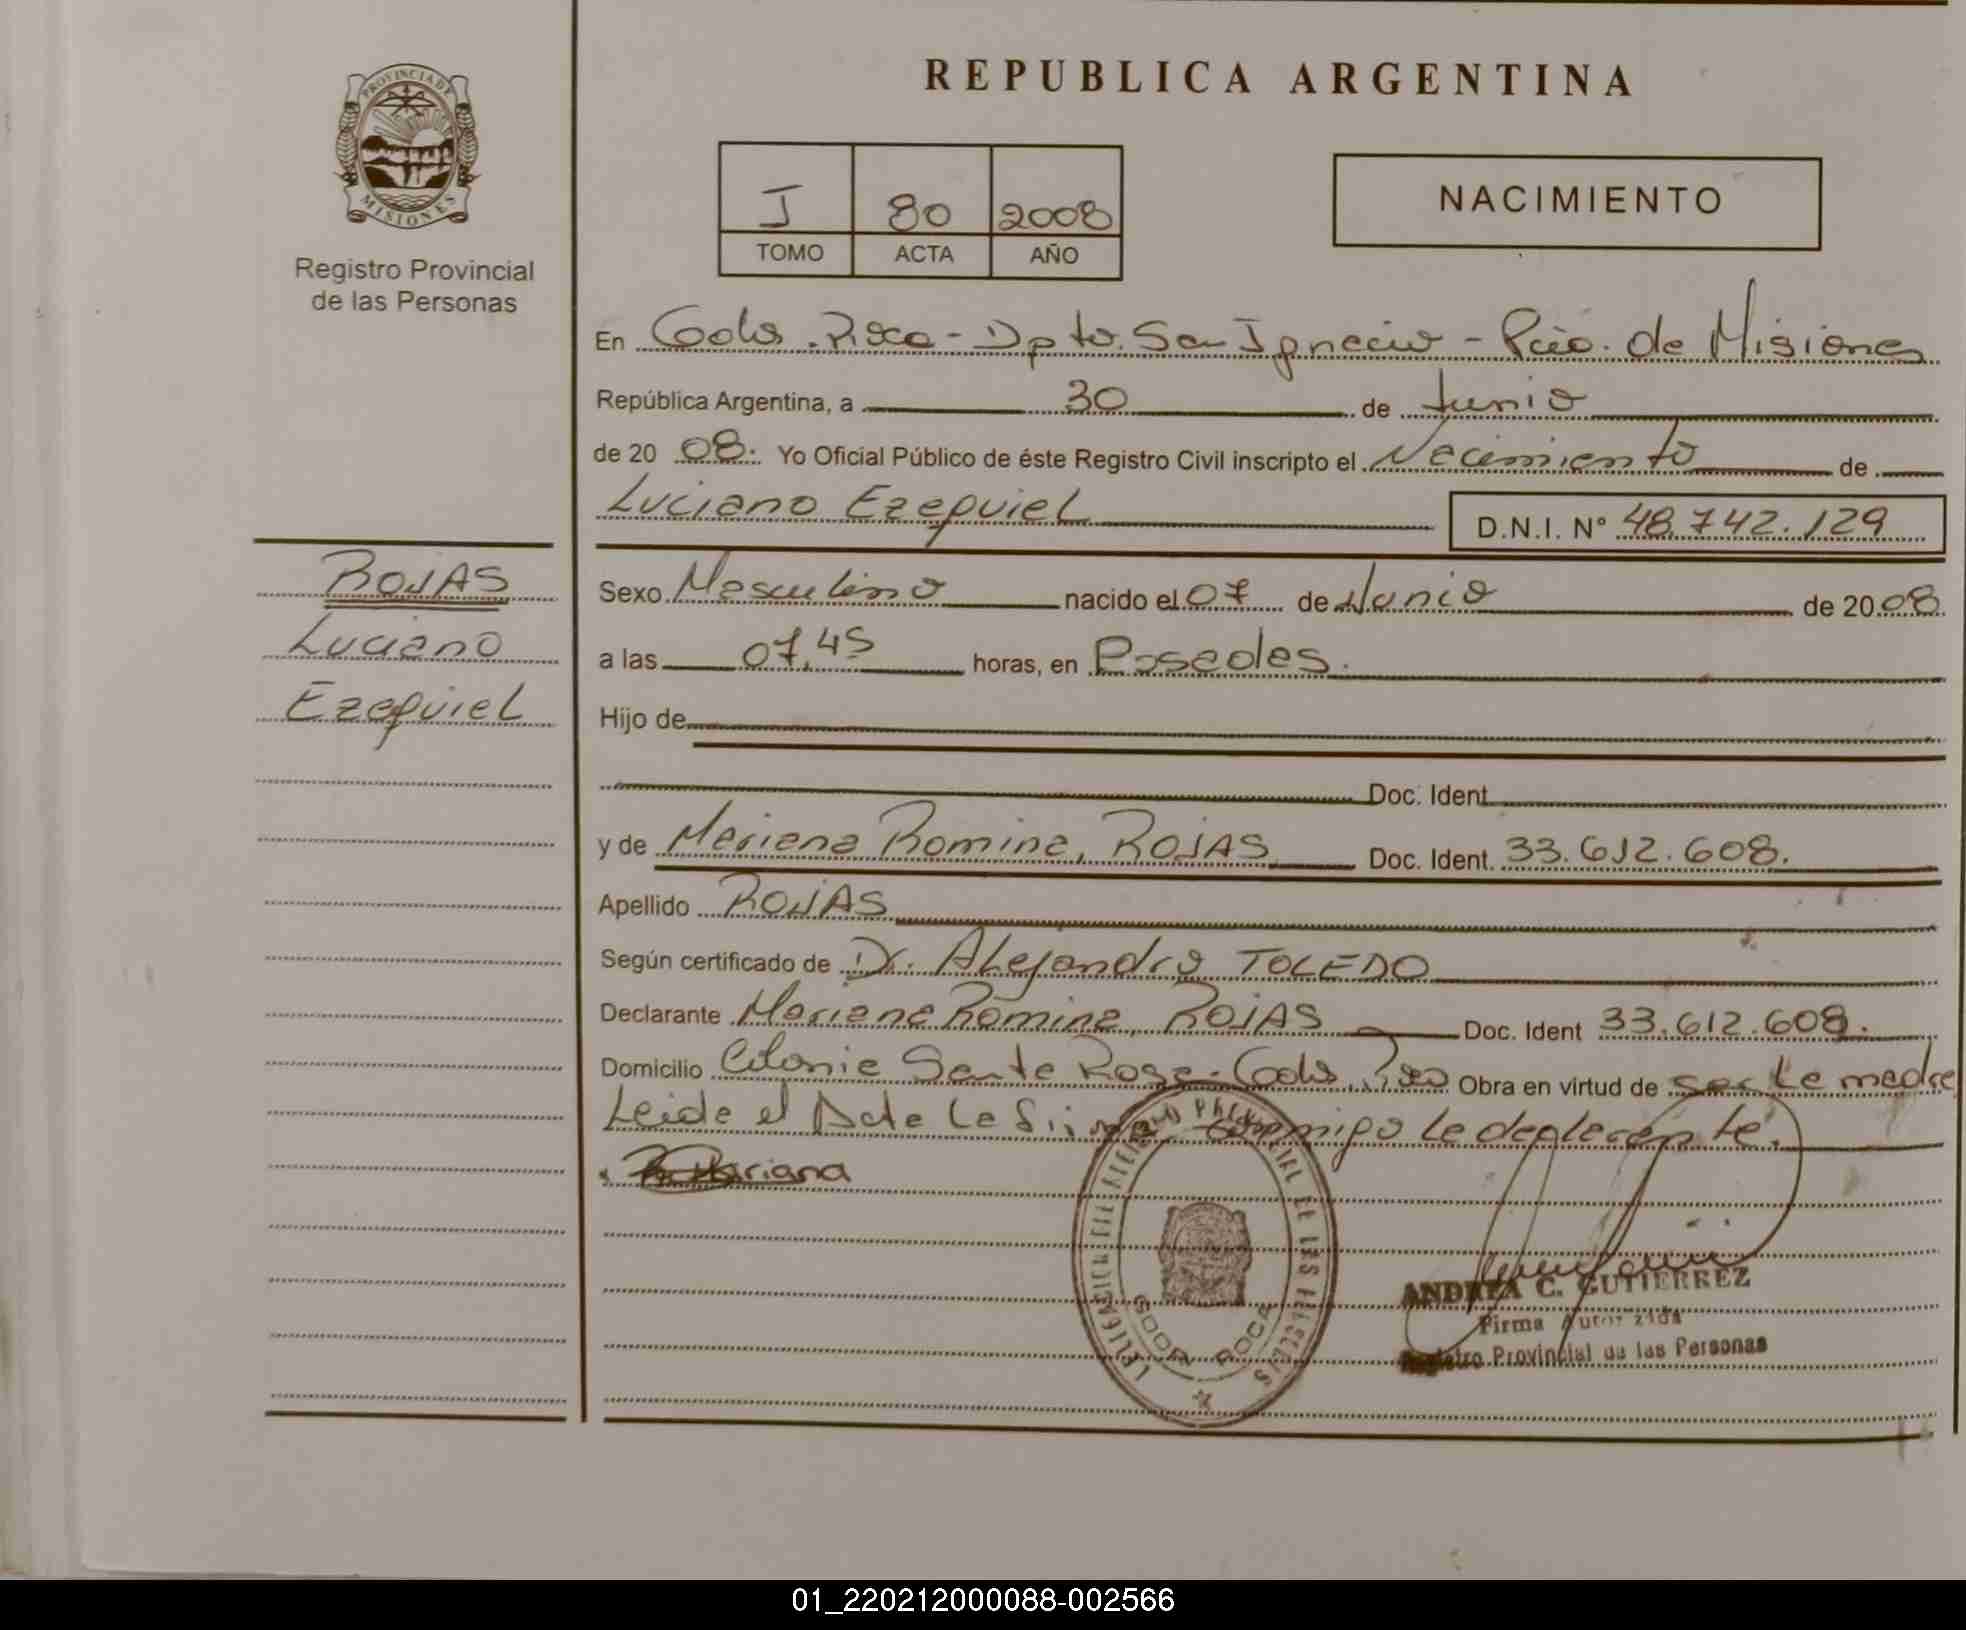 REPUBLICA ARGENTINA
PROVINCIA DE
MISIONES
Registro Provincial
de las Personas
I 80 2008
TOMO ACTA AÑO
NACIMIENTO
En Gdor. Roca - Dpto. San Ignacio - Pcia. de Misiones
República Argentina, a 30 de Junio
de 20 08. Yo Oficial Público de éste Registro Civil inscripto el Nacimiento de
Luciano Ezequiel D.N.I. N° 48.742.129
ROJAS
Luciano
Ezequiel
Sexo Masculino nacido el 07 de Junio de 20 08
a las 07,45 horas, en Posadas.
Hijo de
Doc. Ident.
y de Mariana Romina, ROJAS Doc. Ident. 33.612.608.
Apellido ROJAS
Según certificado de Dr. Alejandro TOLEDO
Declarante Mariana Romina, ROJAS Doc. Ident 33.612.608.
Domicilio Colonia Santa Rosa - Gdor. Roca Obra en virtud de ser la madre
Leida el Acta la firma conmigo la declarante.
Mariana
PROVINCIAL DE LAS
GDOR ROCA
ANDREA C. GUTIERREZ
Firma Autorizada
Registro Provincial de las Personas
01_220212000088-002566